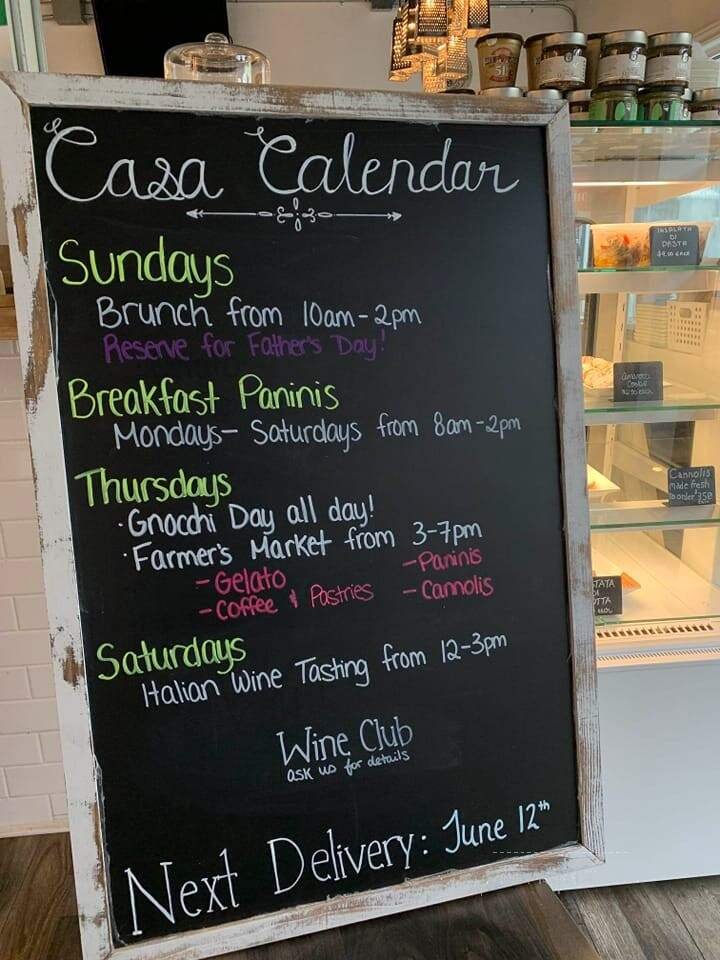 Casa Calendar
Sundays
Brunch from 10am-2pm
Reserve for Father's Day!
Breakfast Paninis
Mondays- Saturdays from 8am-2pm
Thursdays
· Gnocchi Day all day!
· Farmer's Market from 3-7pm
- Gelato - Paninis
- Coffee & Pastries - Cannolis
Saturdays
Italian Wine Tasting from 12-3pm
Wine Club
ask us for details
Next Delivery: June 12th
INSALATA
DI
PASTA
Amaretto
Cookie
Cannolis
made fresh
to order